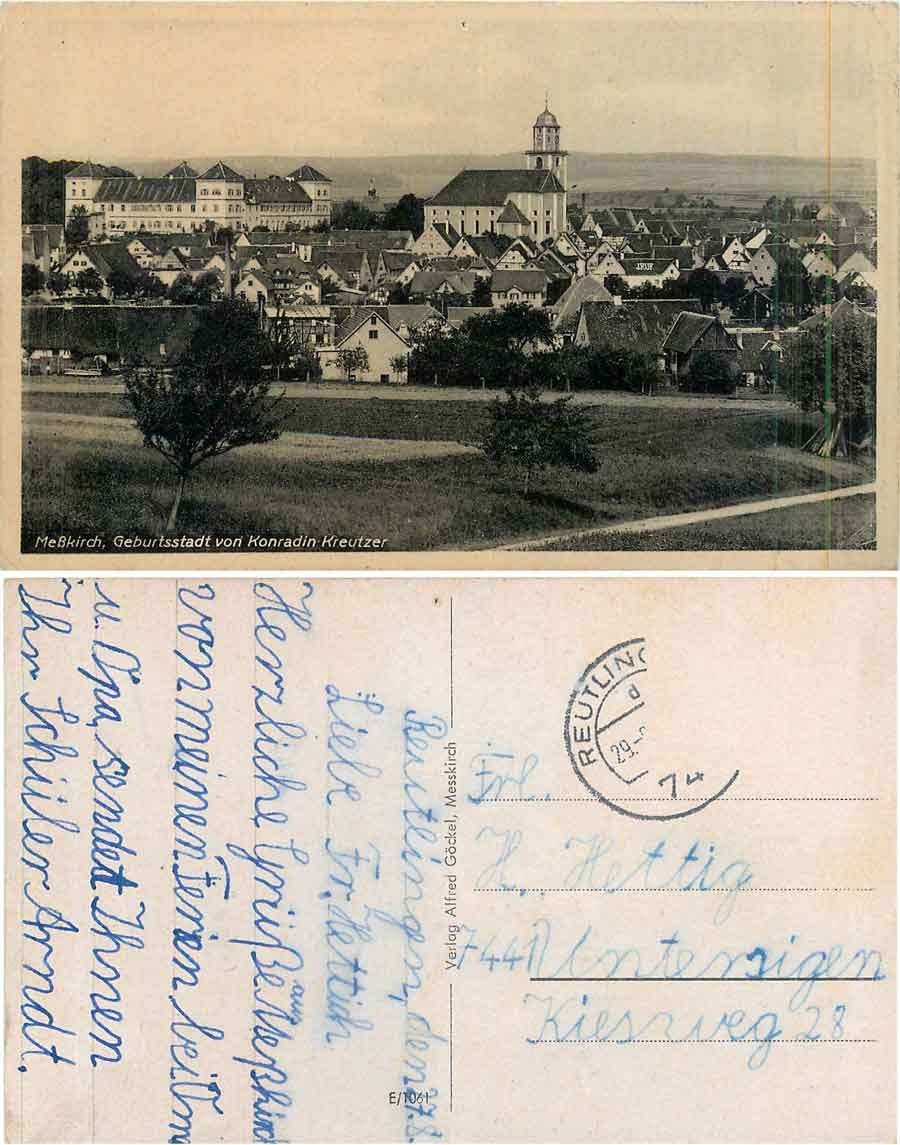 Meßkirch, Geburtsstadt von Konradin Kreutzer
Reutlingen, den 27.8.
Liebe Fr. Hettich
Herzliche Grüße aus Meßkirch
von meinen Ferien bei Oma
u. Opa, sendet Ihnen
Ihr Schüler Arndt.
Verlag Alfred Göckel, Messkirch
E/1061
REUTLING
d
29.-8
74
Frl.
H. Hettig
7441 Untersigen
Kiesrweg 28